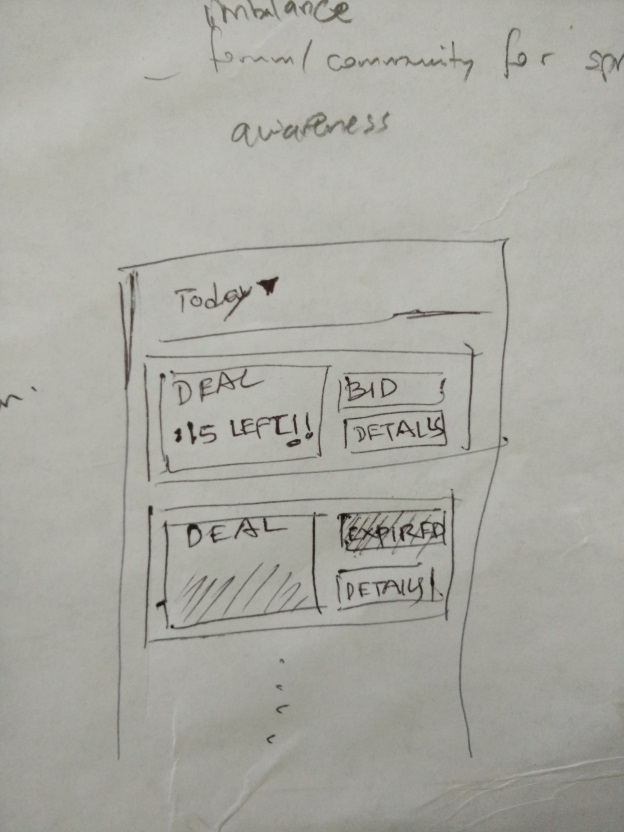 imbalance
– forum/community for
awareness
Today▼
DEAL
:15 LEFT!!
BID
DETAILS
DEAL
EXPIRED
DETAILS